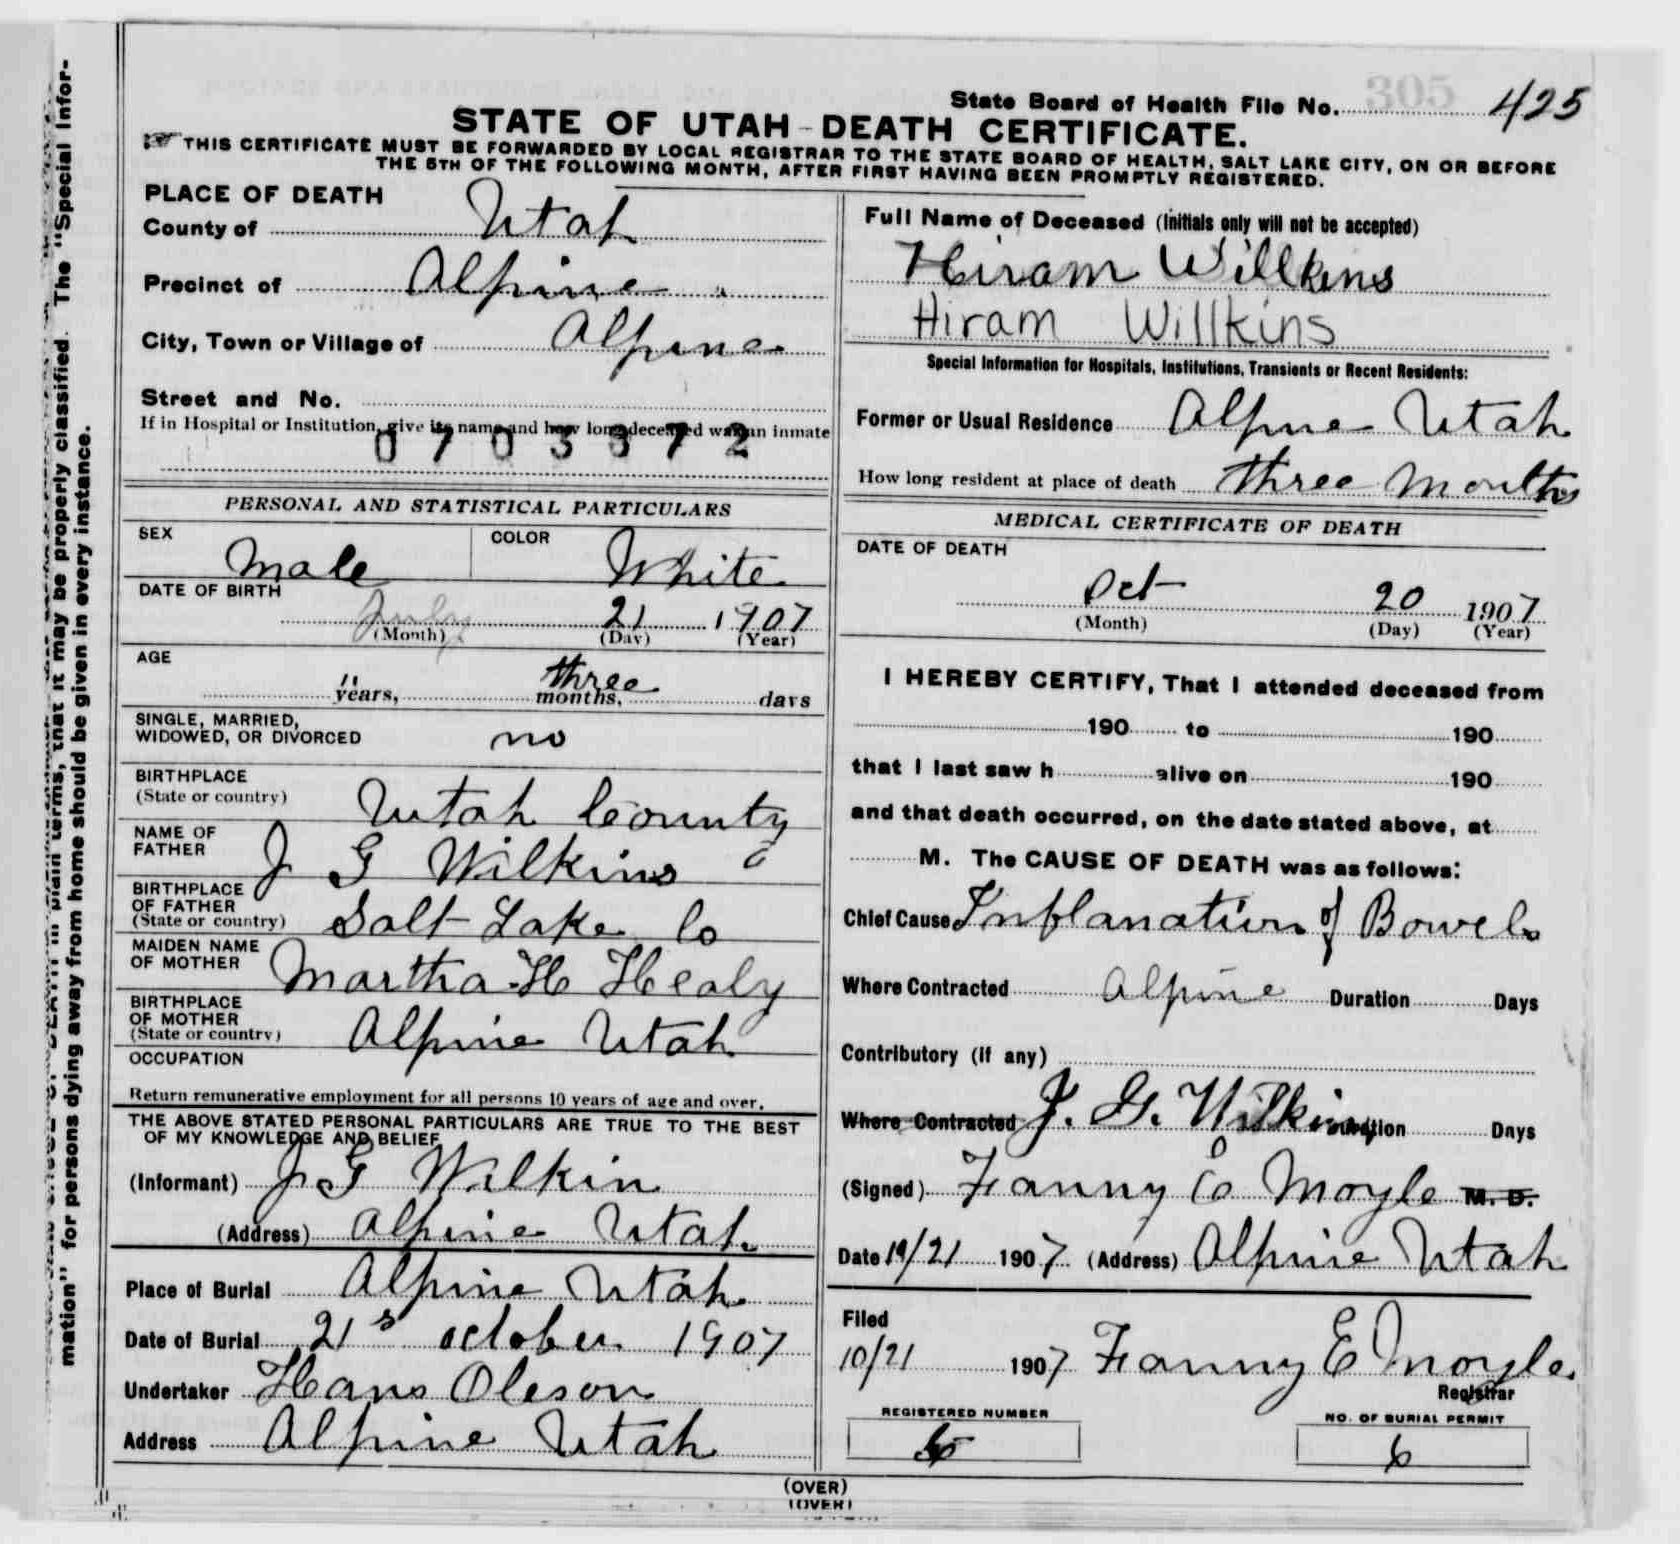 State Board of Health File No. 305 425
STATE OF UTAH - DEATH CERTIFICATE.
THIS CERTIFICATE MUST BE FORWARDED BY LOCAL REGISTRAR TO THE STATE BOARD OF HEALTH, SALT LAKE CITY, ON OR BEFORE
THE 5TH OF THE FOLLOWING MONTH, AFTER FIRST HAVING BEEN PROMPTLY REGISTERED.
PLACE OF DEATH
County of Utah
Precinct of Alpine
City, Town or Village of Alpine
Street and No.
If in Hospital or Institution, give its name and how long deceased was an inmate
0703372
PERSONAL AND STATISTICAL PARTICULARS
SEX Male COLOR White
DATE OF BIRTH
July 21 1907
(Month) (Day) (Year)
AGE
" years, three months, days
SINGLE, MARRIED,
WIDOWED, OR DIVORCED no
BIRTHPLACE
(State or country) Utah County
NAME OF
FATHER J G Wilkins
BIRTHPLACE
OF FATHER
(State or country) Salt Lake Co
MAIDEN NAME
OF MOTHER Martha H Healy
BIRTHPLACE
OF MOTHER
(State or country) Alpine Utah
OCCUPATION
Return remunerative employment for all persons 10 years of age and over.
THE ABOVE STATED PERSONAL PARTICULARS ARE TRUE TO THE BEST
OF MY KNOWLEDGE AND BELIEF
(Informant) J G Wilkin
(Address) Alpine Utah
Place of Burial Alpine Utah
Date of Burial 21s October 1907
Undertaker Hans Oleson
Address Alpine Utah
Full Name of Deceased (Initials only will not be accepted)
Hiram Willkins
Hiram Willkins
Special Information for Hospitals, Institutions, Transients or Recent Residents:
Former or Usual Residence Alpine Utah
How long resident at place of death three Months
MEDICAL CERTIFICATE OF DEATH
DATE OF DEATH
Oct 20 1907
(Month) (Day) (Year)
I HEREBY CERTIFY, That I attended deceased from
190 to 190
that I last saw h alive on 190
and that death occurred, on the date stated above, at
M. The CAUSE OF DEATH was as follows:
Chief Cause Inflanation of Bowels
Where Contracted Alpine Duration Days
Contributory (if any)
Where Contracted J. G. Wilkins Duration Days
(Signed) Fanny E Moyle M. D.
Date 10/21 1907 (Address) Alpine Utah
Filed
10/21 1907 Fanny E Moyle
Registrar
REGISTERED NUMBER
NO. OF BURIAL PERMIT
6
(OVER)
(OVER)
mation" for persons dying away from home should be given in every instance.
plain terms, that it may be properly classified. The "Special Infor-